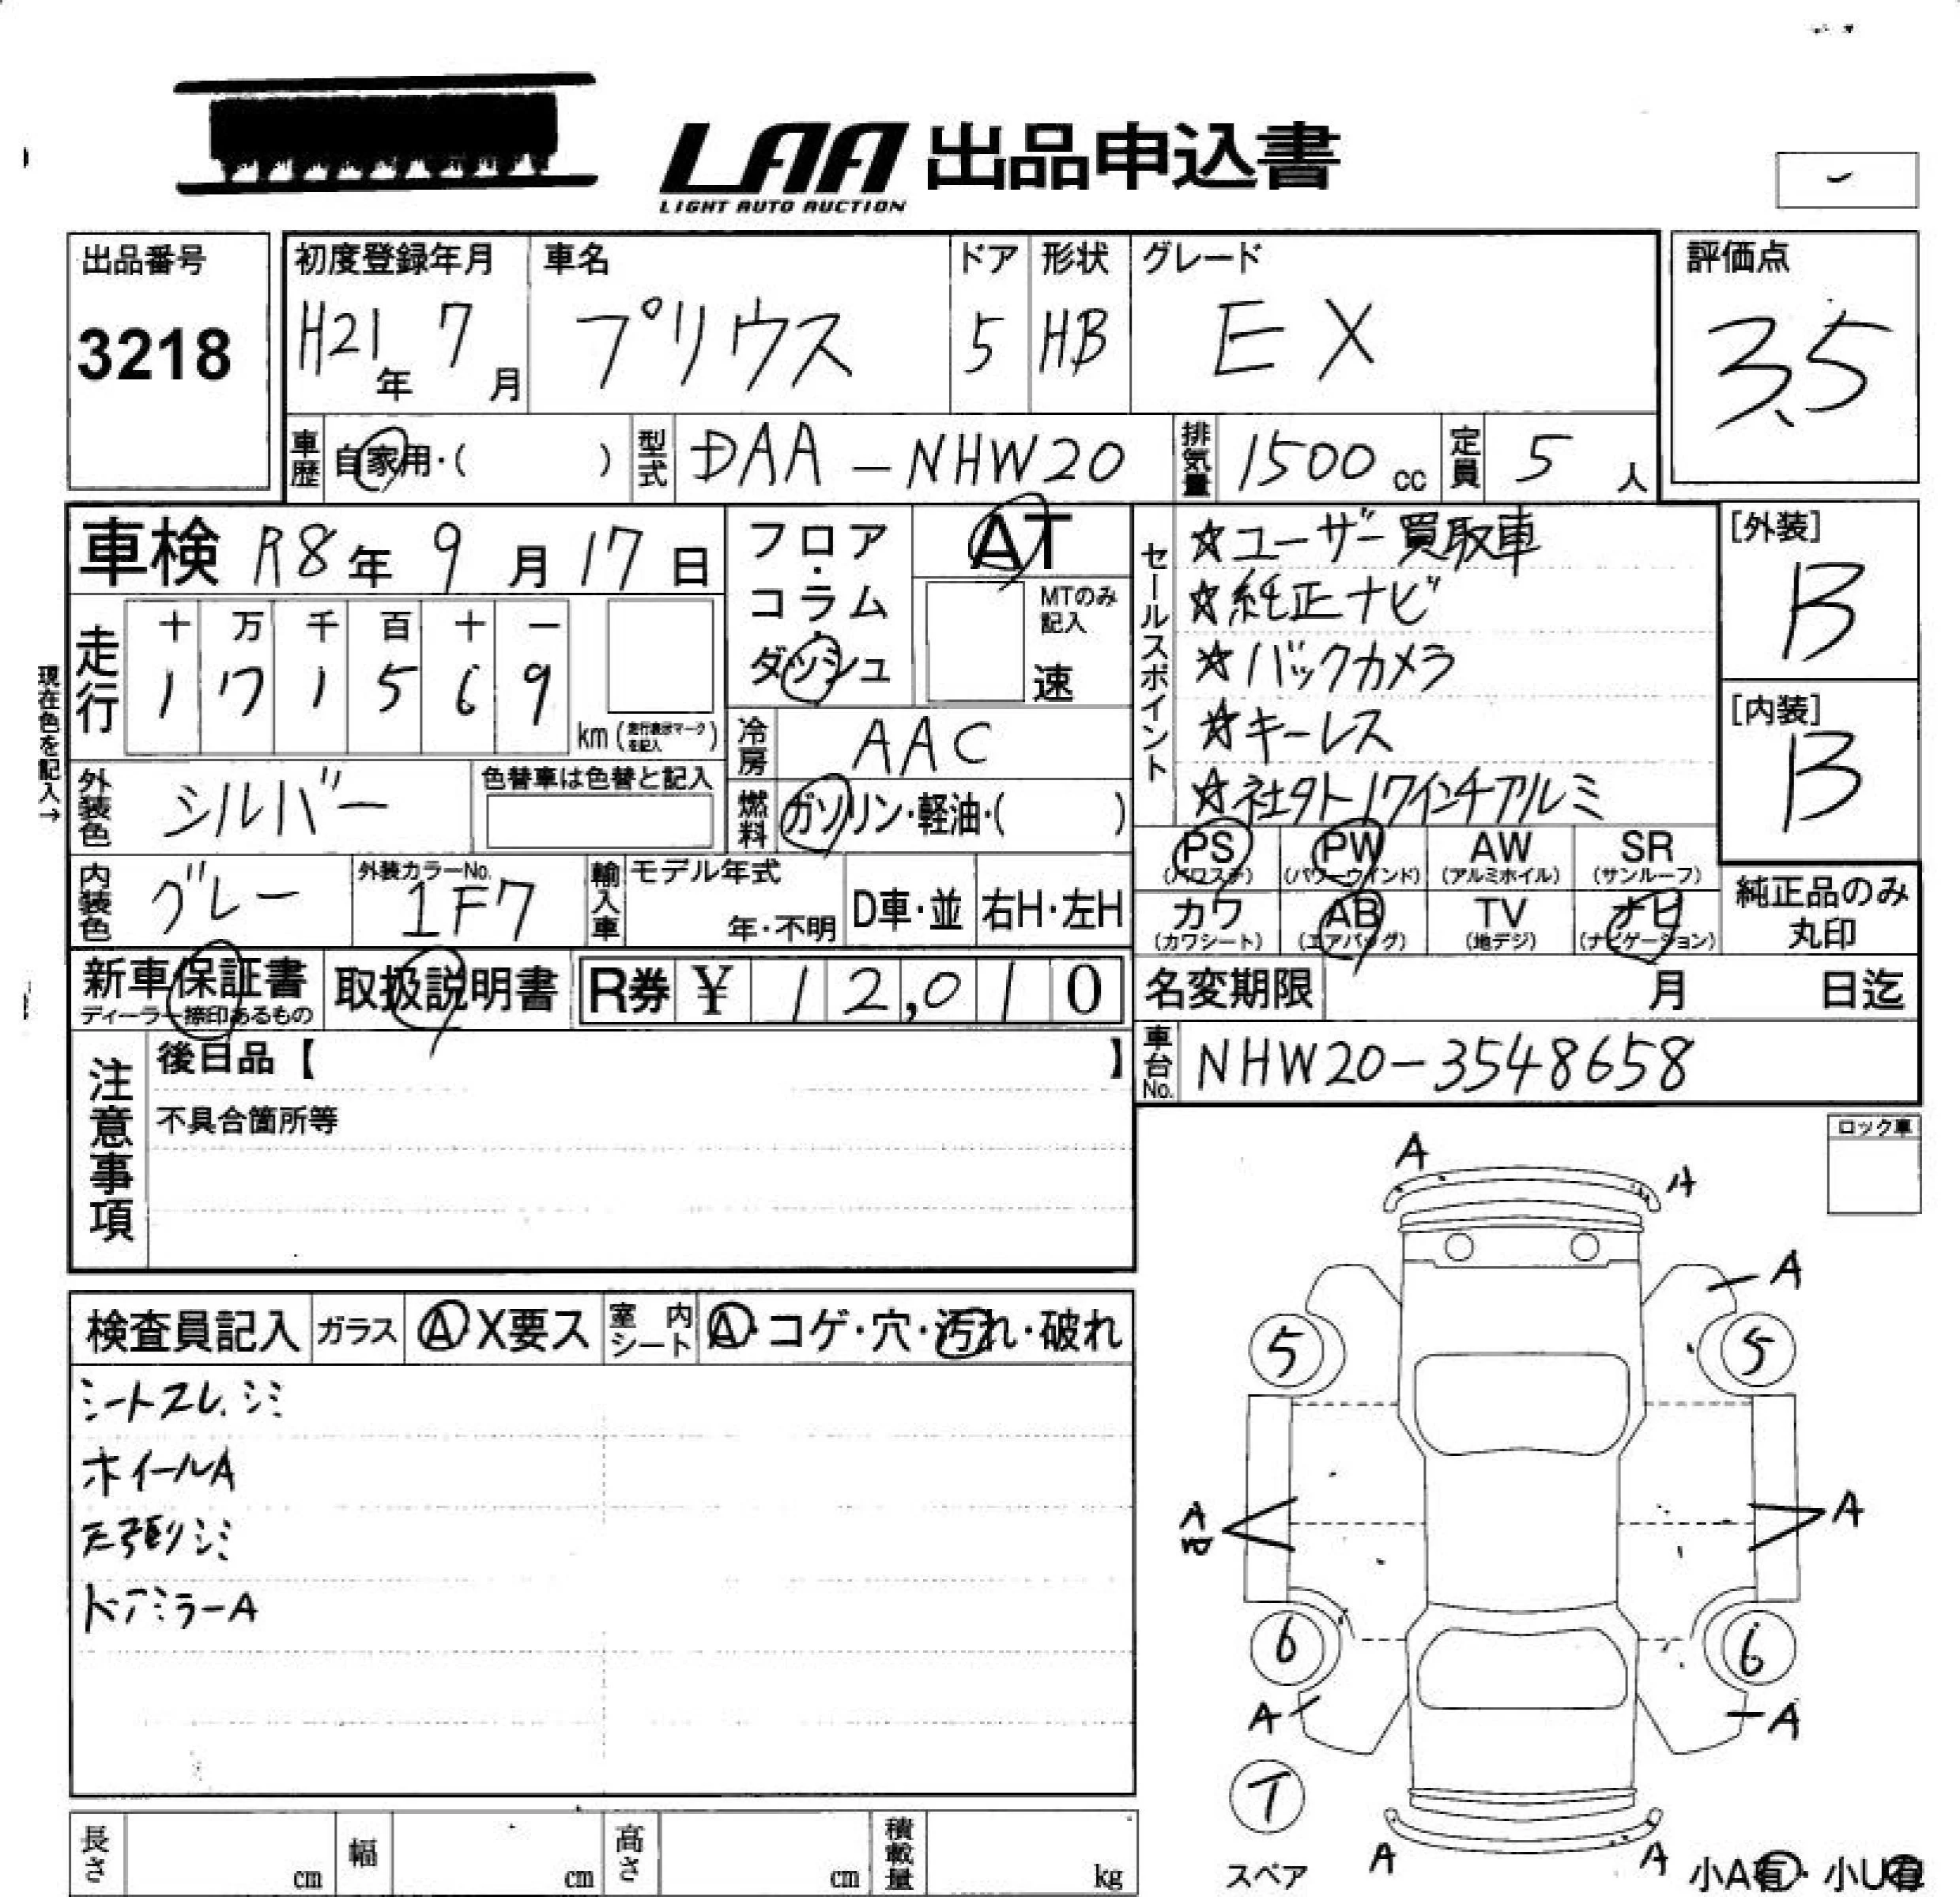 LAA 出品申込書
LIGHT AUTO AUCTION
出品番号
3218
初度登録年月
H21年 7月
車名
プリウス
ドア
5
形状
HB
グレード
EX
評価点
3.5
車歴
自家用・( )
型式
DAA-NHW20
排気量
1500 cc
定員
5 人
車検 R8年 9月 17日
フロア・コラム・ダッシュ
AT
MTのみ記入
速
セールスポイント
☆ユーザー買取車
☆純正ナビ
☆バックカメラ
☆キーレス
☆社外17インチアルミ
[外装]
B
[内装]
B
走行
十 万 千 百 十 一
1 7 1 5 6 9
km (走行表示マークを記入)
現在色を記入→
冷房
AAC
外装色
シルバー
色替車は色替と記入
燃料
ガソリン・軽油・( )
PS PW AW SR
(パワステ) (パワーウインド) (アルミホイル) (サンルーフ)
カワ AB TV ナビ
(カワシート) (エアバッグ) (地デジ) (ナビゲーション)
純正品のみ
丸印
内装色
グレー
外装カラーNo.
1F7
輸入車
モデル年式
年・不明
D車・並
右H・左H
新車保証書
ディーラー捺印あるもの
取扱説明書
R券 ¥ 12,010
名変期限 月 日迄
車台No.
NHW20-3548658
注意事項
後日品【 】
不具合箇所等
ロック車
検査員記入
ガラス
A・X要ス
室内シート
A・コゲ・穴・汚れ・破れ
シートスレ、シミ
ホイールA
天張シミ
ドアミラーA
A
A
A
5
5
A
A
6
6
A
A
T
スペア
A
A
小A有・小U有
長さ cm
幅 cm
高さ cm
積載量 kg